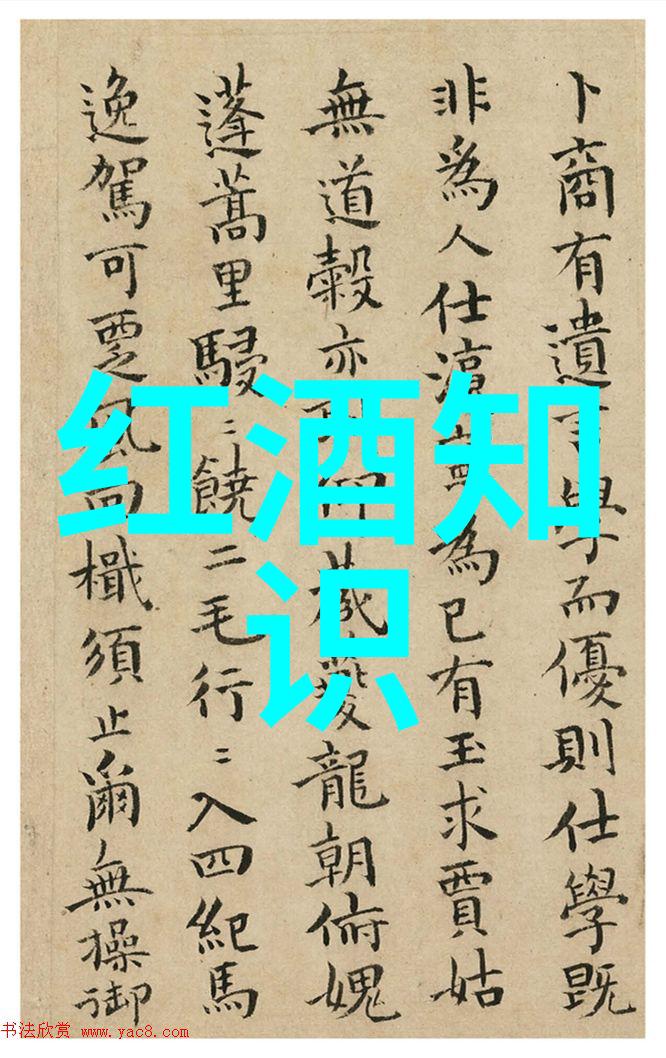 卜商有遺言學而優則仕學既
非爲人仕為已有玉求賈姑
無道穀亦龍朝俯媿
蓬蒿里駸〻饒二毛行〻入四紀馬
逸駕可覂風回檝須止爾無操御
红酒知
识
书法欣赏 www.yac8.com